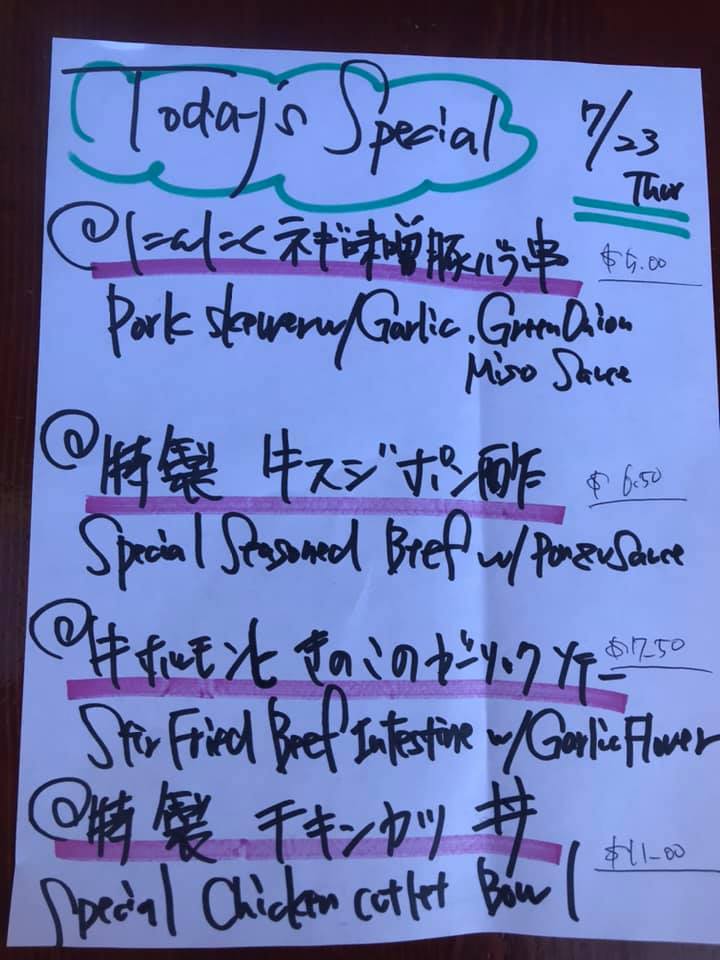 Today's Special
7/23
Thur
@にんにくネギ味噌豚バラ串 $5.00
Pork skewer w/Garlic, Green Onion
Miso Sauce
@特製 牛スジポン酢 $6.50
Special Seasoned Beef w/Ponzu Sauce
@牛ホルモンときのこのガーリックソテー $7.50
Stir Fried Beef Intestine w/Garlic Flower
@特製 チキンカツ丼 $11.00
Special Chicken cutlet Bowl